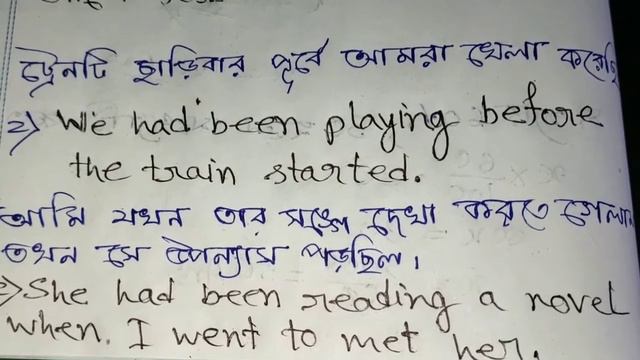 ট্রেনটি ছাড়িবার পূর্বে আমরা খেলা
2) We had been playing before
the train started.
আমি যখন তার সঙ্গে দেখা করতে গেলাম
তখন সে উপন্যাস পড়ছিল।
She had been reading a novel
when. I went to met her.